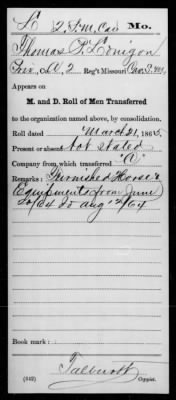 L 2 S. M. Cav Mo.
Thomas P. Lonigon
Priv., Co. A, 2 Reg't Missouri Cav. S. M.
Appears on
M. and D. Roll of Men Transferred
to the organization named above, by consolidation.
Roll dated March 21, 1863.
Present or absent Not Stated
Company from which transferred "C"
Remarks: Furnished Horse &
Equipments from June
/64 to Aug 12/64
Book mark:
(342) Talbott
Copyist.